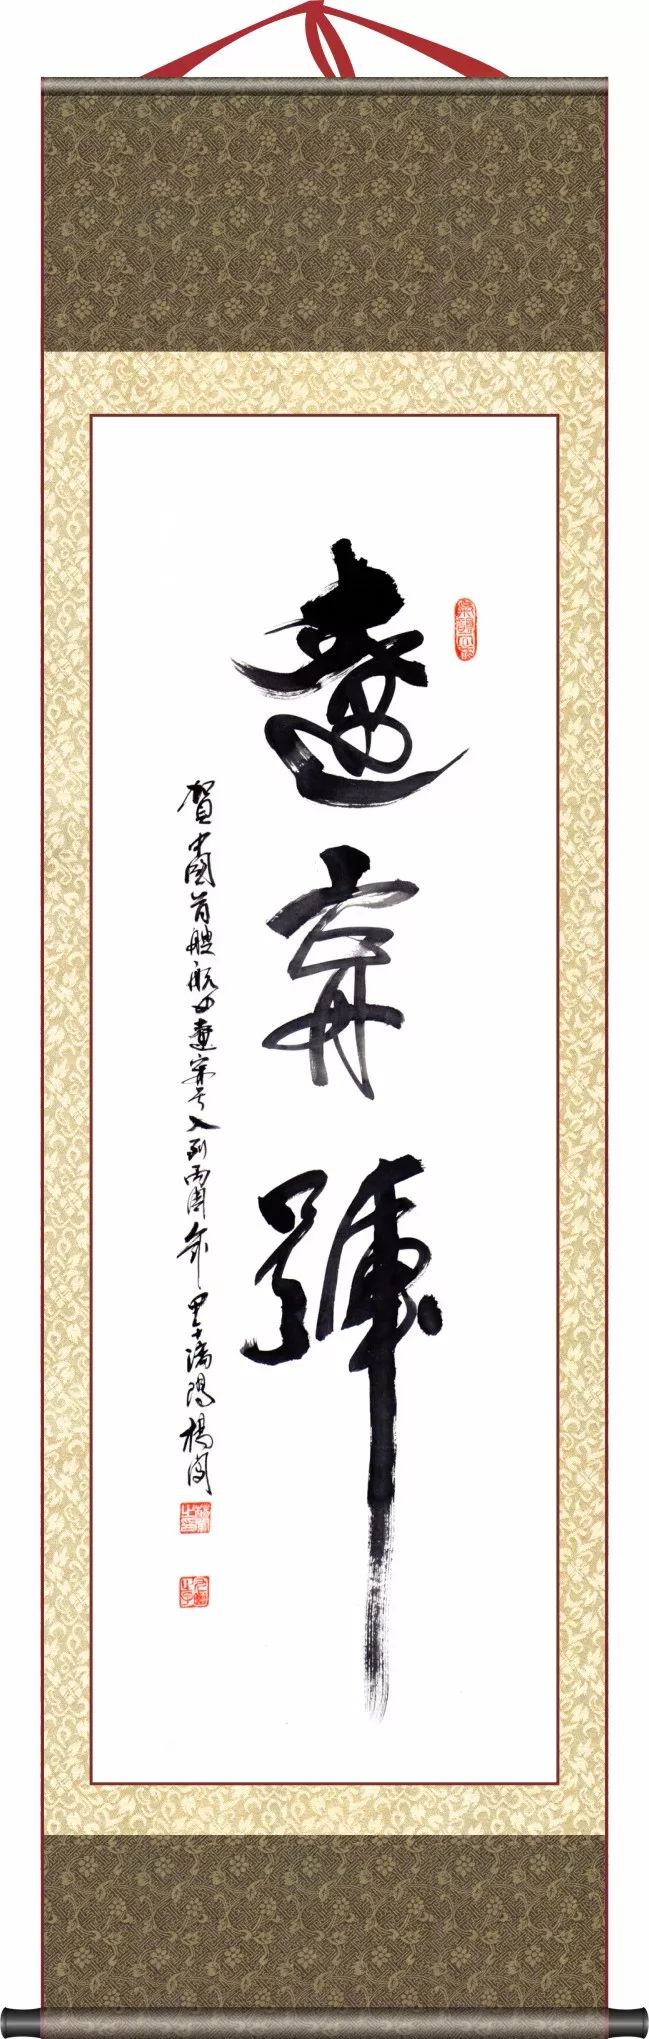 遼寧號
賀中國首艘航母遼寧号入列两周年甲午瀋陽楊